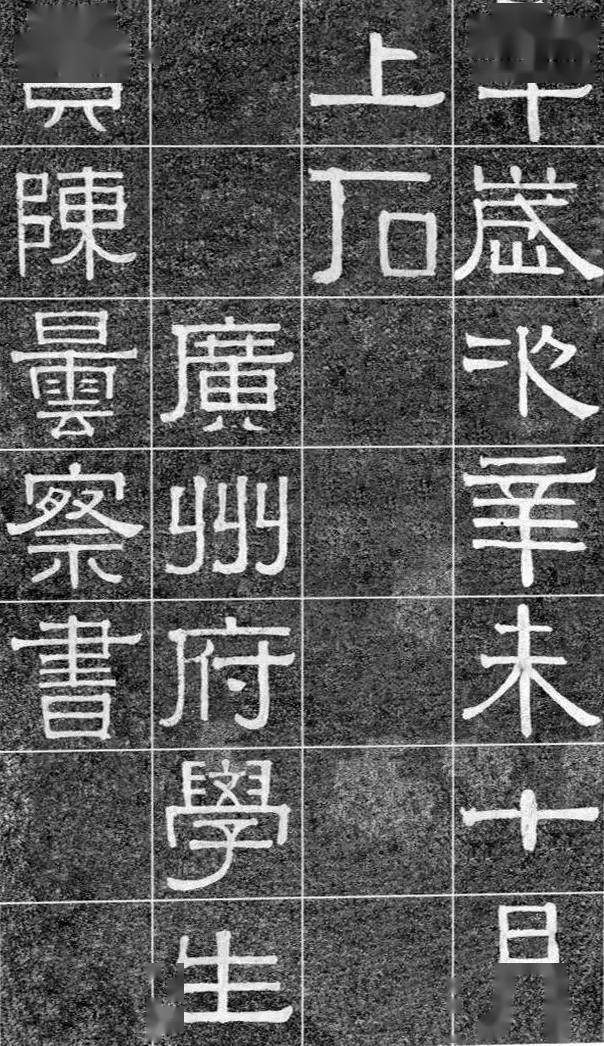 歲次辛未十
上石
廣州府學生
陳曇察書